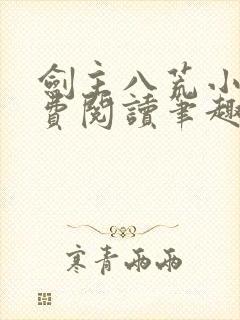 劍主八荒小
費閱讀筆趣
寒青雨雨